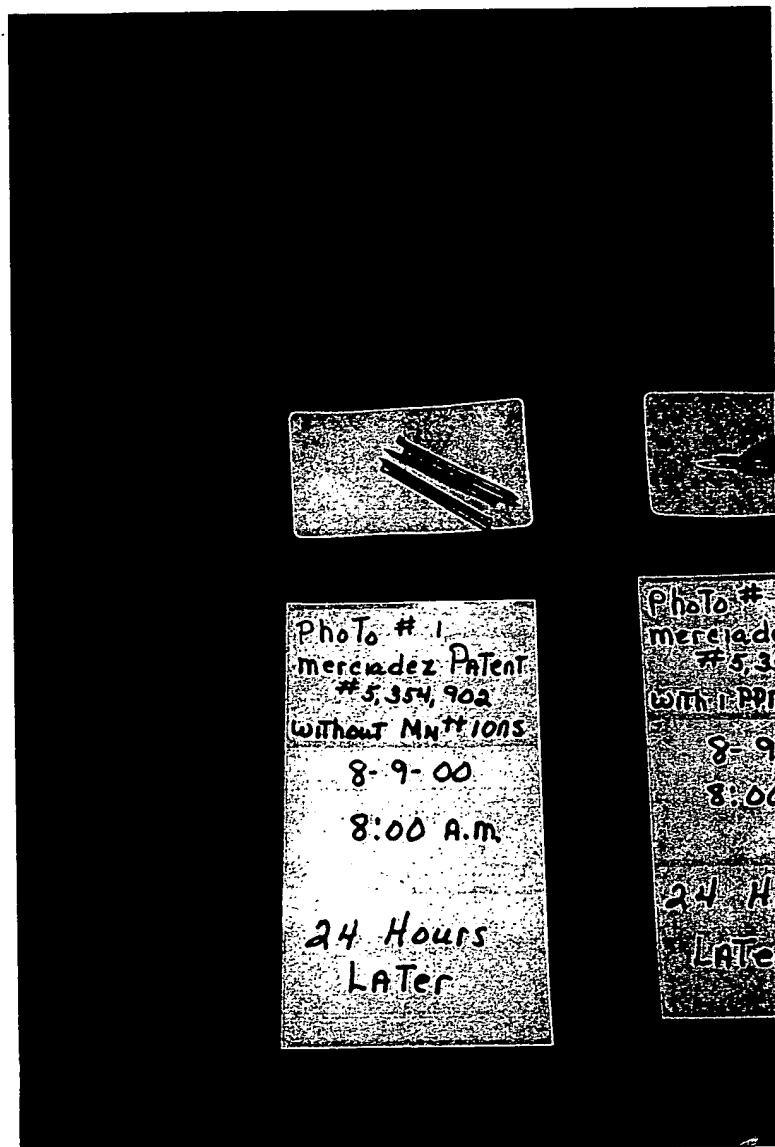 PhoTo # 1
merciadez PATent
#5,354,902
without MN++ ions
8-9-00
8:00 A.m.
24 Hours
LATer
PhoTo #
merciade
#5,3
with 1 PP
8-9
8:00
24 H
LATe